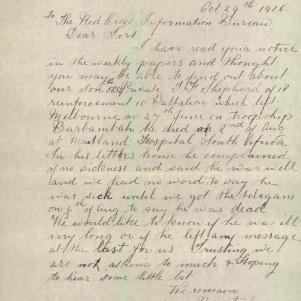 Oct 29th 1916
To The Red Cross Information Bureau
Dear Sirs
I have read your notice
in the weekly papers and thought
you may be able to find out about
our Son Private Shepherd of 18
reinforcement Battalion which left
Melbourne on 27th June on troopship
Barbambah he died 2nd of Aug
at Maitland Hospital South Africa
In his letters home he complained
of no sickness and said he was well
and we had no word to say he
was sick until we got the telegram
on 6th of Aug to say he was dead
We would like to know if he was ill
very long or if he left any message
at the last for us Trusting we
are not asking to much & Hoping
to hear some little bit
We remain